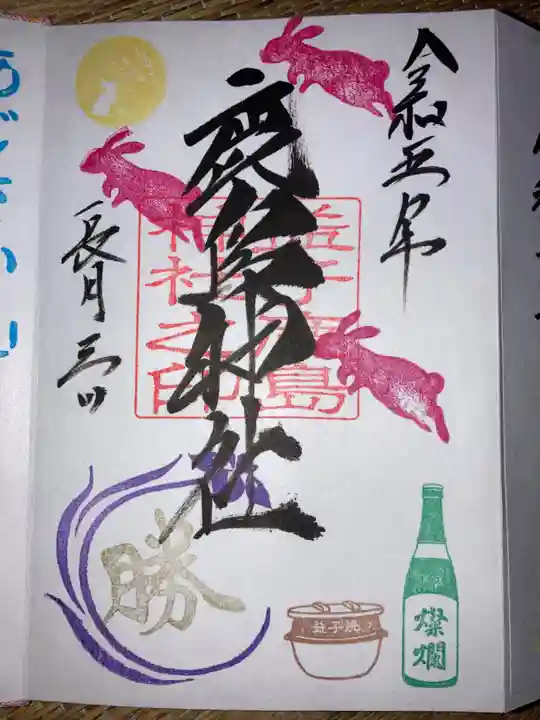 令和五年
鹿島神社
長月三日
益子鹿島
神社之印
勝
益子焼
燦爛